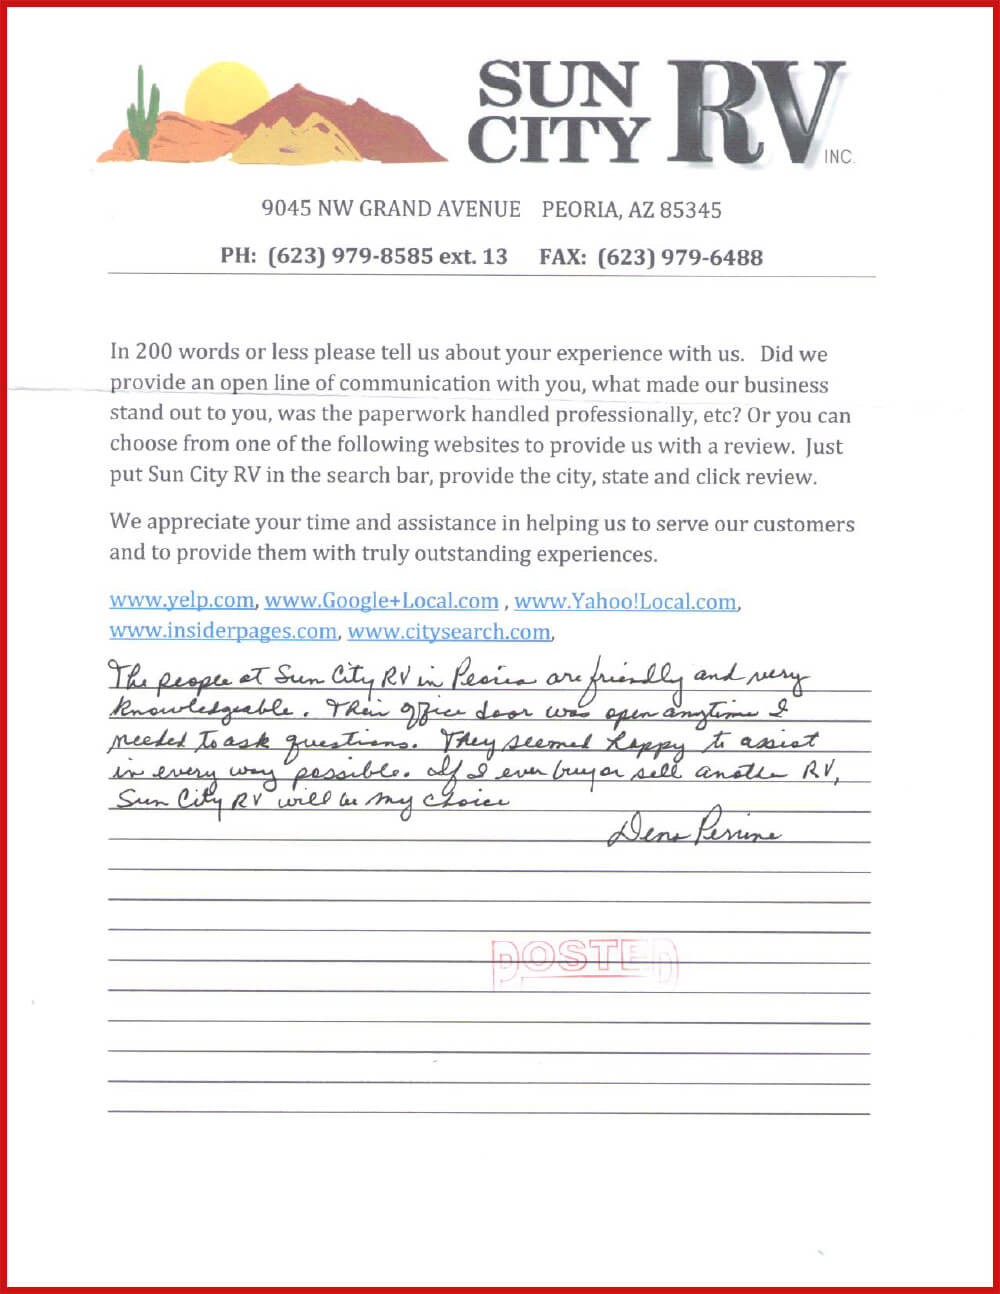 SUN CITY RV INC.
9045 NW GRAND AVENUE PEORIA, AZ 85345
PH: (623) 979-8585 ext. 13 FAX: (623) 979-6488
In 200 words or less please tell us about your experience with us. Did we
provide an open line of communication with you, what made our business
stand out to you, was the paperwork handled professionally, etc? Or you can
choose from one of the following websites to provide us with a review. Just
put Sun City RV in the search bar, provide the city, state and click review.
We appreciate your time and assistance in helping us to serve our customers
and to provide them with truly outstanding experiences.
www.yelp.com, www.Google+Local.com , www.Yahoo!Local.com,
www.insiderpages.com, www.citysearch.com,
The people at Sun City RV in Peoria are friendly and very
knowledgeable. Their office door was open anytime I
needed to ask questions. They seemed happy to assist
in every way possible. If I ever buy or sell another RV,
Sun City RV will be my choice
Dena Perrine
POSTED